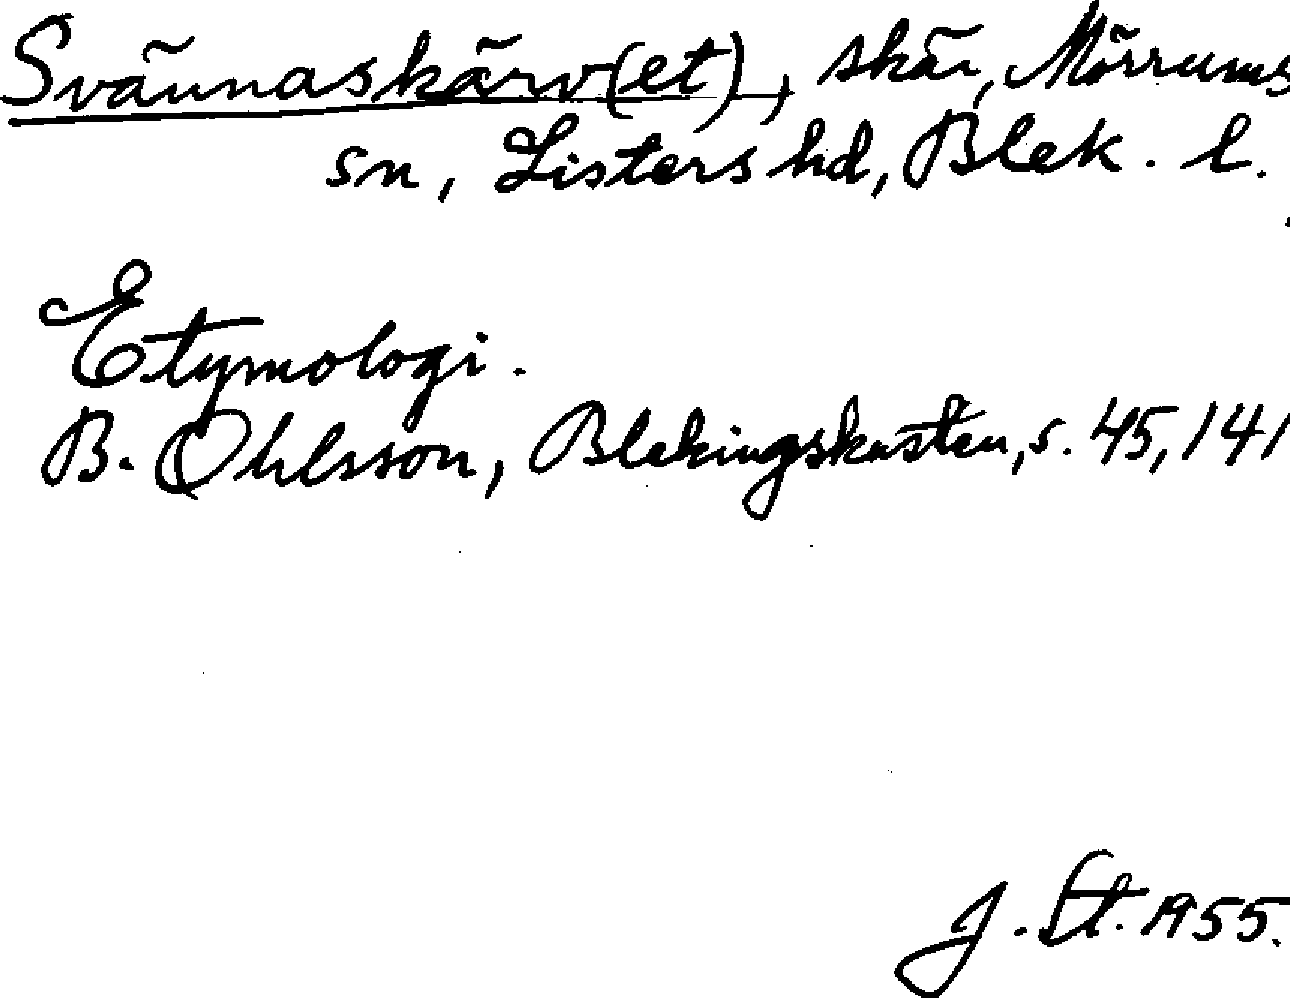 Svännaskärv(et), skär, Mörrums
sn, Listers hd, Blek. l.
Etymologi.
B. Ohlsson, Blekingskusten, s. 45, 141
J. St. 1955.